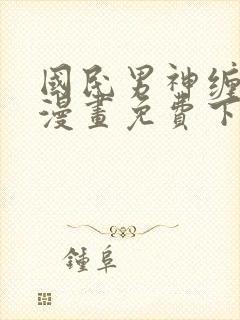 國民男神纏
漫畫免費下
鍾阜